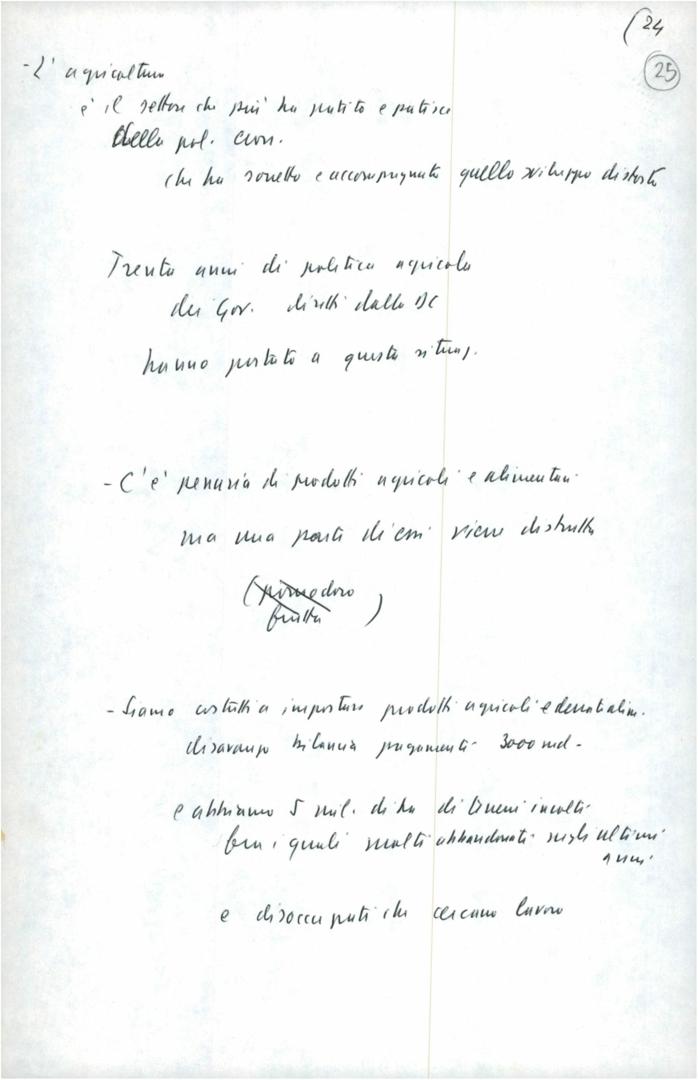 (24
25
- L' agricoltura
è il settore che più ha patito e patisce
della pol. econ.
che ha sorretto e accompagnato quello sviluppo distorto
Trenta anni di politica agricola
dei Gov. diretti dalla DC
hanno portato a questa situaz.
- C'è penuria di prodotti agricoli e alimentari
ma una parte di essi viene distrutta
(pomodoro
frutta)
- Siamo costretti a importare prodotti agricoli e derrate alim.
disavanzo bilancia pagamenti 3000 md -
e abbiamo 5 mil. di ha di terreni incolti
fra i quali molti abbandonati negli ultimi
anni
e disoccupati che cercano lavoro